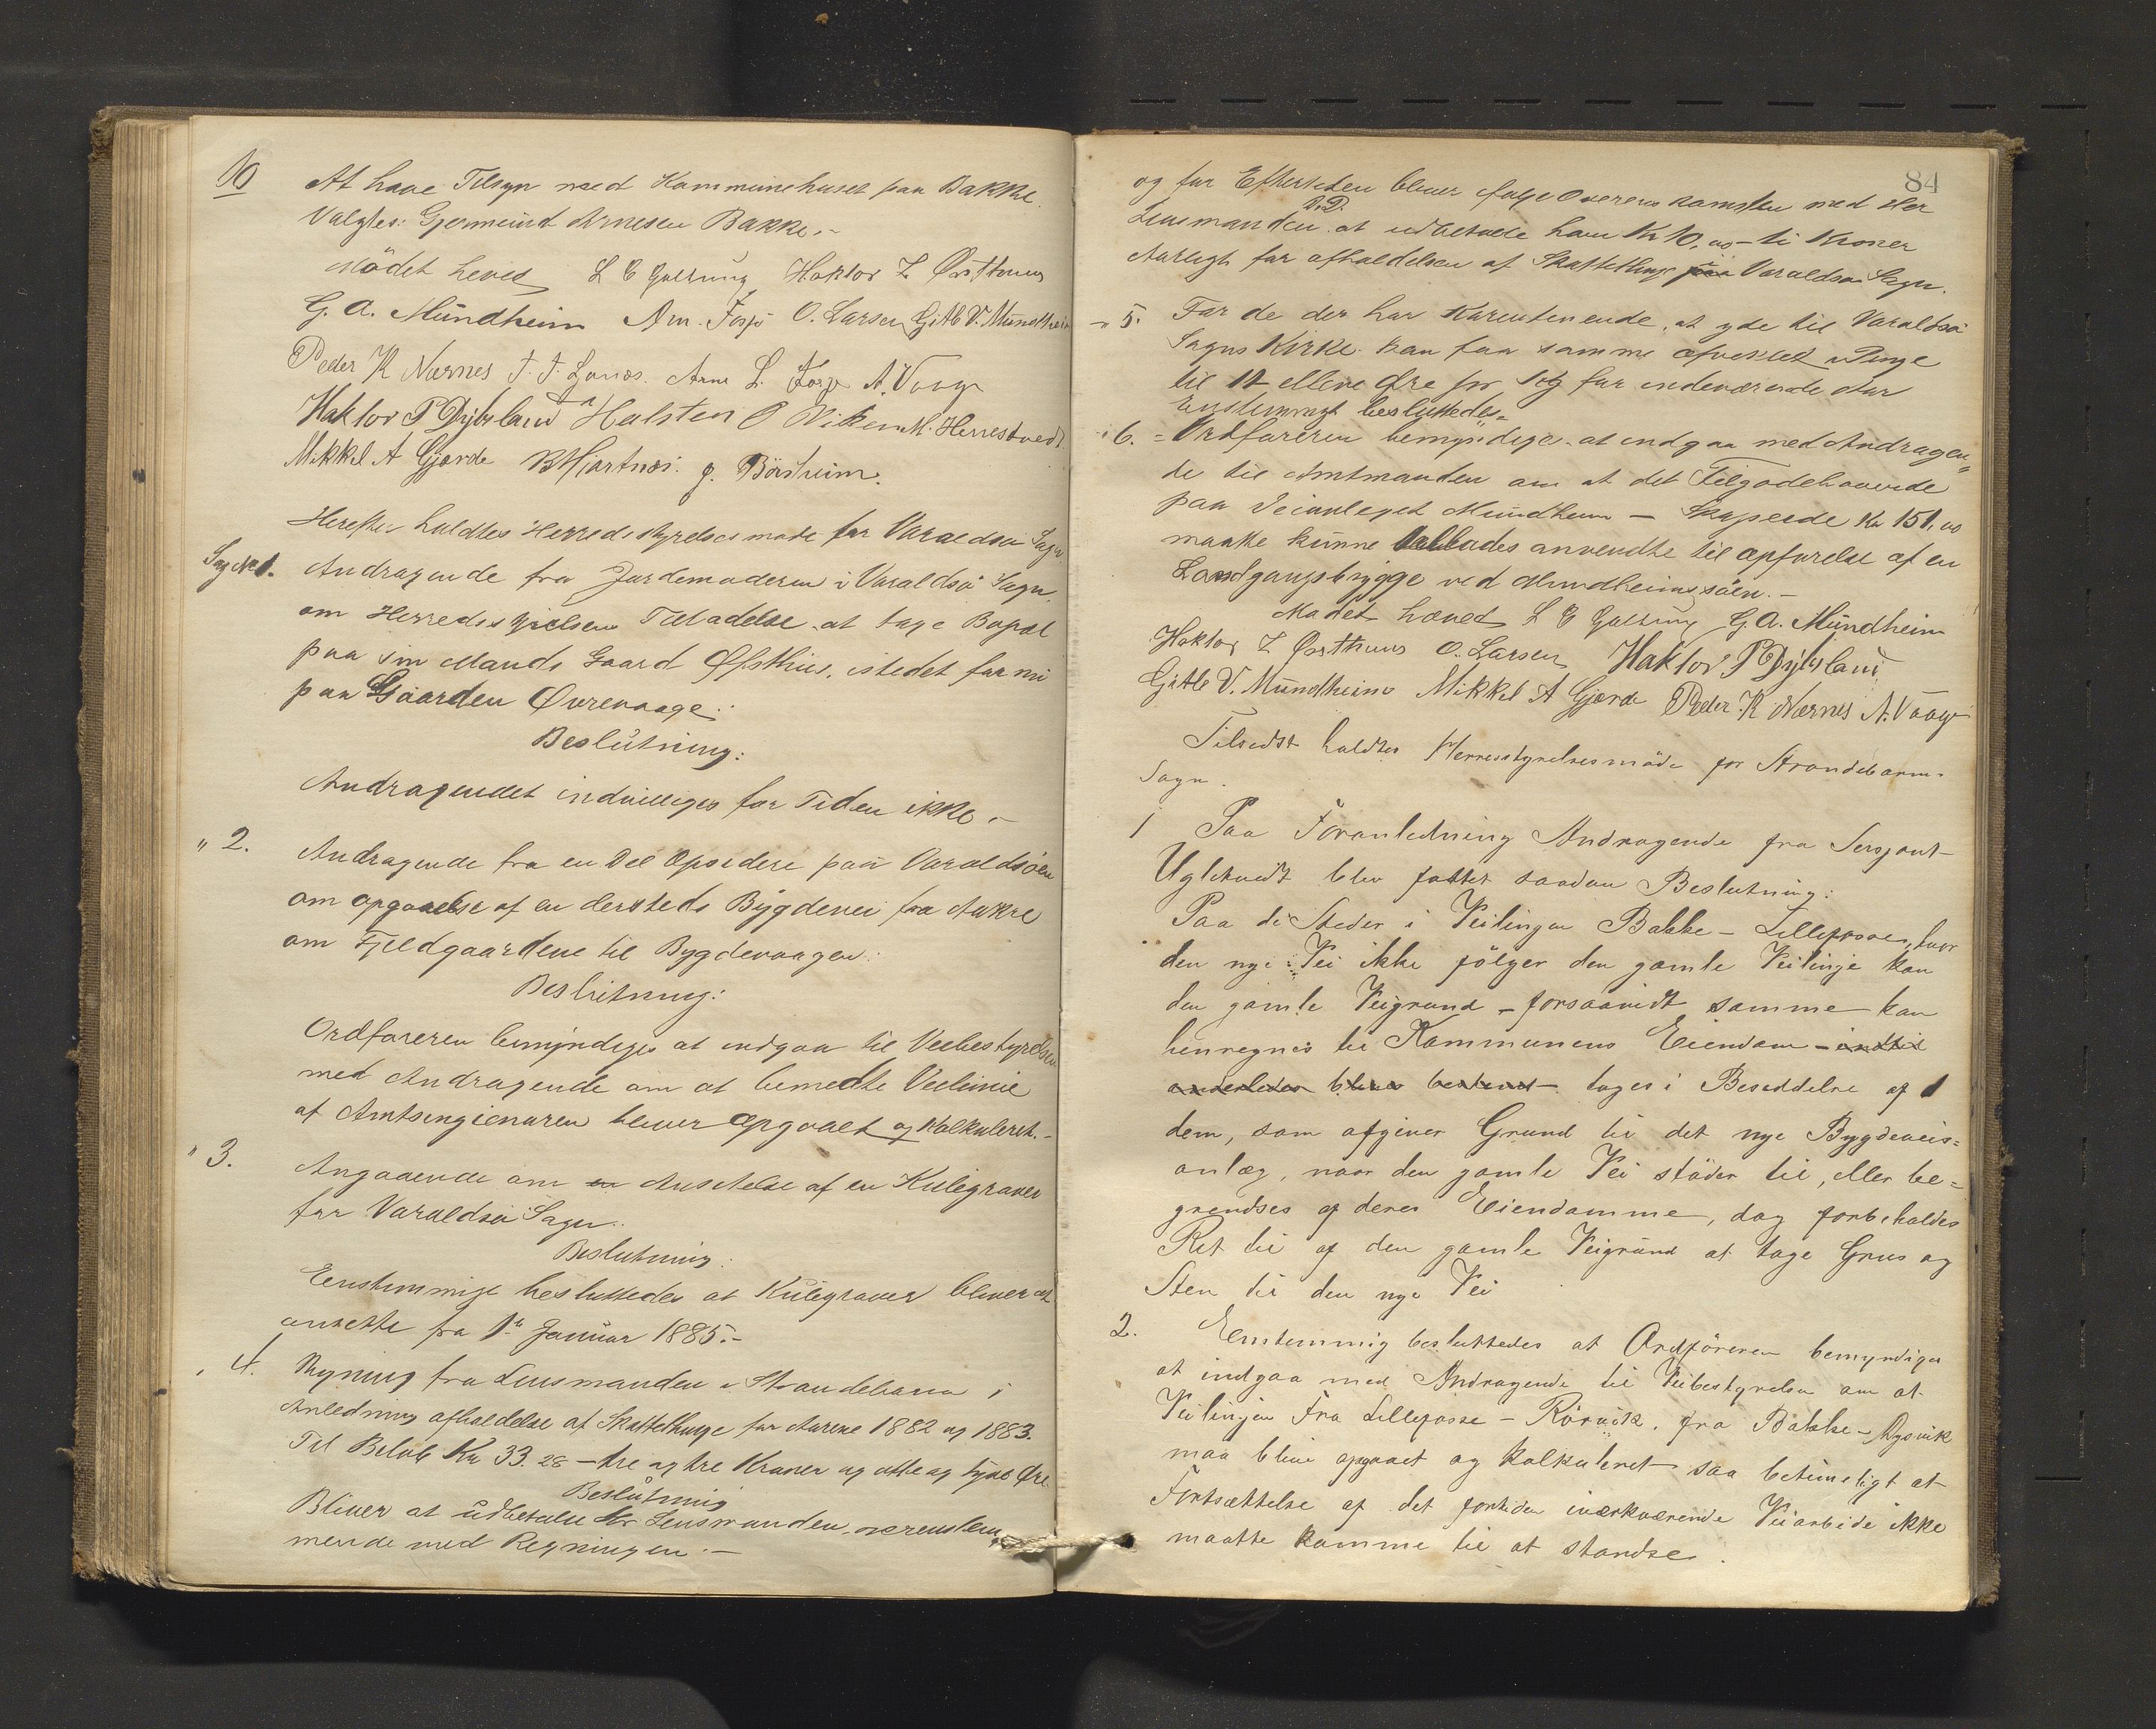 10
At have Tilsyn med Kommunehuset paa Bakke.
Valgtes: Gjermund Arnesen Bakke.-
Mödet heves L E Galtung Haktor Z Øvsthuus
G. A. Mundheim Arn. Fosse O. Larsen Gitle V. Mundheim
Peder K Nærnes J. J. Ljones. Arne L. A. Vaage
Haktor P Dysland Halsten O Viken M. Herrestvedt
Mikkel A Gjerde B Hjortnæs. g. Börsheim.
Herefter holdtes Herredsstyrelsesmøde for Varaldsø Sogn
Sag No 1. Andragende fra Jordemoderen i Varaldsø Sogn
om Herredsstyrelsens Tilladelse at tage Bopæl
paa sin Mands Gaard Øfsthus, istedet for nu
paa Gaarden Øvrevaage.
Beslutning:
Andragendet indvilliges for Tiden ikke.-
" 2. Andragende fra en Del Opsidere paa Varaldsöen
om opgaaelse af en dersteds Bygdevei fra Aakre
om Fjeldgaardene til Bygdevaagen:
Beslutning:
Ordføreren bemyndiges at indgaa til Veibestyrelsen
med Andragende om at bemeldte Veilinie
af Amtsingieniøren bliver opgaaet og Kalkuleret.-
" 3. Angaaende om en Ansættelse af en Kulegraver
for Varaldsø Sogn.
Beslutning:
Eenstemmigt besluttedes at Kulegraver bliver at
ansætte fra 1ste Januar 1885.-
" 4. Regning fra Lensmanden i Strandebarm i
Anledning afholdelse af Skattethinge for Aarene 1882 og 1883.
Til Beløb Kr 33.28 - tre og tre Kroner og otte og tyve Øre
Beslutning
Bliver at udbetale Hr Lensmanden, overenstem
mende med Regningen.-
84
og for Eftertiden bliver ifølge Overenskomsten med Her
Lensmanden D.D. at udbetale ham Kr 10,00 - ti Kroner
Aarligt for afholdelsen af Skattething paa Varaldsø Sogn.
" 5. For de der har Kornrentenende, at yde til Varaldsö
Sogns Kirke kan faa samme afvexlet i Penge
til 11 elleve Øre pr Kg for indeværende Aar
Enstemmigt besluttedes
" 6. Ordføreren bemyndiges at indgaa med Andragen
de til Amtmanden om at det Tilgodehavende
paa Veianlæget Mundheim - Skogseide Kr 151,00
maatte kunne tillades anvendte til opførelse af en
Landgangsbrygge ved Mundheimssöen.-
Mødet hævet L E Galtung G. A. Mundheim
Haktor Z Øvsthuus O. Larsen Haktor P Dysland
Gitle V. Mundheim Mikkel A Gjerde Peder K Nærnes A. Vaage
Tilsidst holdtes Herredsstyrelsesmöde for Strandebarm
Sogn.
1 Paa Foranledning Andragende fra Sersjant
Ugletvedt blev fattet saadan Beslutning:
Paa de Steder i Veilinjen Bakke - Lillefosse, hvor
den nye Vei ikke fölger den gamle Veilinje kan
den gamle Veigrund - forsaavidt samme kan
henregnes til Kommunens Eiendom - indtil
anderledes blev bestemt - tages i Besiddelse af
dem, som afgiver Grund til det nye Bygdeveis=
anlæg, naar den gamle Vei stöder til, eller be=
grændses af deres Eiendomme, dog forbeholdes
Ret til af den gamle Veigrund at tage Grus og
Sten til den nye Vei
2. Eenstemmig besluttedes at Ordföreren bemyndiges
at indgaa med Andragende til Veibestyrelsen om at
Veilinjen fra Lillefosse - Rörvik, fra Bakke - Rysvik
maa blive opgaaet og kalkuleret saa betimeligt at
Fortsættelse af det fortiden iværkværende Veiarbeide ikke
maatte komme til at standse.